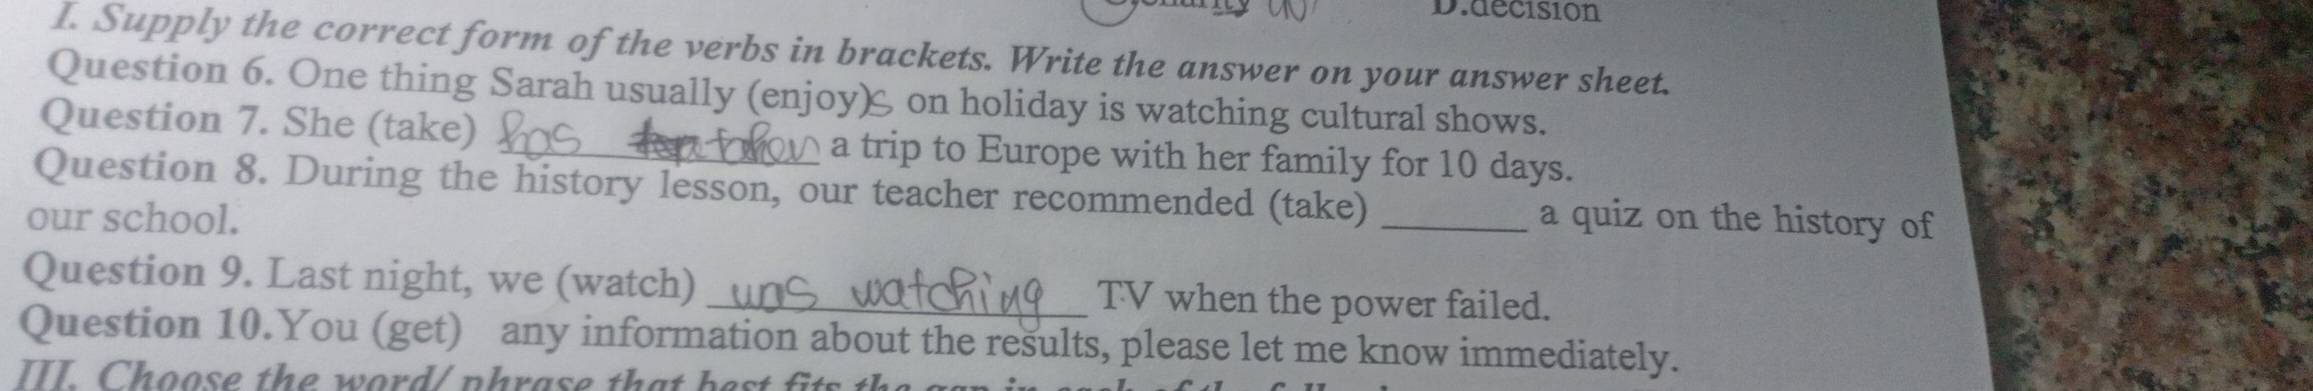 D.decision
I. Supply the correct form of the verbs in brackets. Write the answer on your answer sheet.
Question 6. One thing Sarah usually (enjoy)s on holiday is watching cultural shows.
Question 7. She (take) has taken a trip to Europe with her family for 10 days.
Question 8. During the history lesson, our teacher recommended (take) ________ a quiz on the history of
our school.
Question 9. Last night, we (watch) was watching TV when the power failed.
Question 10.You (get) any information about the results, please let me know immediately.
III. Choose the word/ phrase that best fits the